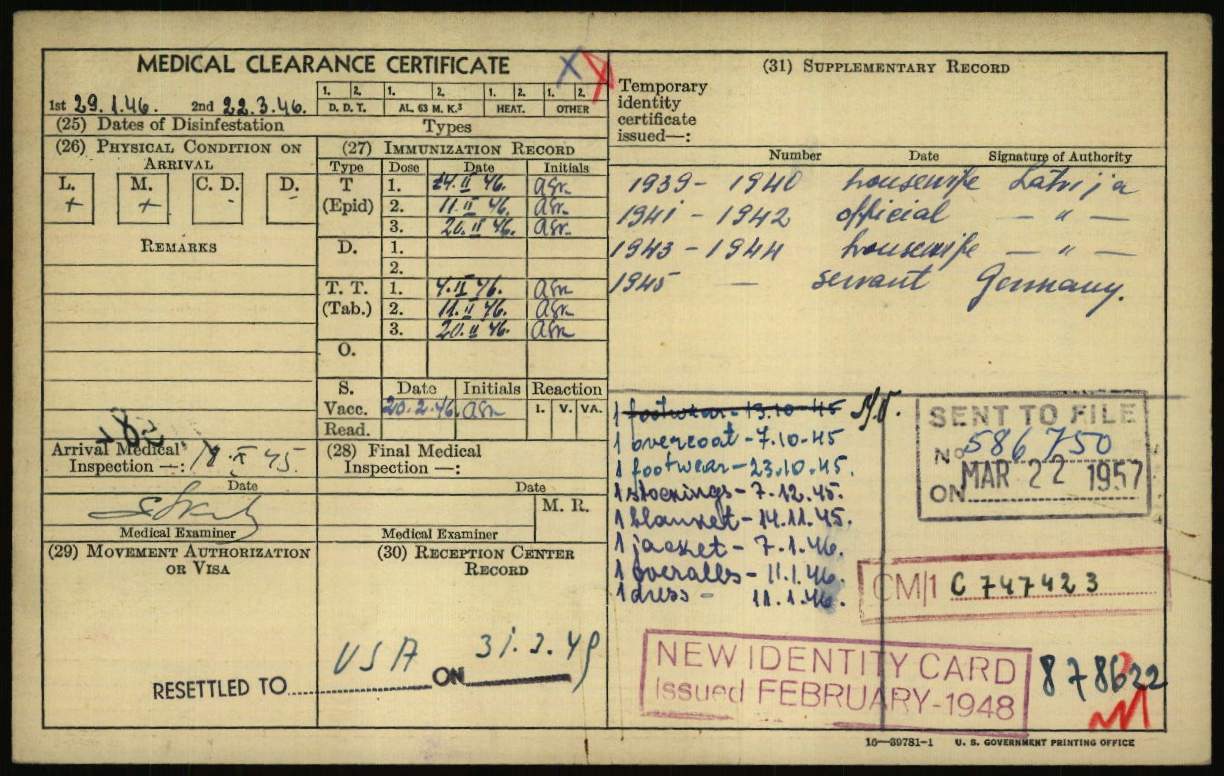 MEDICAL CLEARANCE CERTIFICATE
1st 29.1.46. 2nd 22.3.46.
1. 2. 1. 2. 1. 2. 1. 2.
D. D. T. AL. 63 M. K.³ HEAT. OTHER
(25) DATES OF DISINFESTATION TYPES
(26) PHYSICAL CONDITION ON
ARRIVAL
L. M. C. D. D.
+ + - -
REMARKS
(27) IMMUNIZATION RECORD
Type Dose Date Initials
T 1. II 46.
(Epid) 2. 11. II 46.
3. 20. II 46.
D. 1.
2.
T. T. 1. 4. II 46.
(Tab.) 2. 11. II 46.
3. 20. II 46.
O.
S. Date Initials Reaction
Vacc. 20.2.46. I. V. VA.
Read.
Arrival Medical
Inspection —: X 45.
Date
Medical Examiner
(28) Final Medical
Inspection —:
Date
M. R.
Medical Examiner
(29) MOVEMENT AUTHORIZATION
OR VISA
(30) RECEPTION CENTER
RECORD
RESETTLED TO USA ON 31.3.49
(31) SUPPLEMENTARY RECORD
Temporary
identity
certificate
issued—:
Number Date Signature of Authority
1939 - 1940 housewife Latvija
1941 - 1942 official — " —
1943 - 1944 housewife — " —
1945 — servant Germany.
1 footwear - 13.10-45
1 overcoat - 7.10-45
1 footwear - 23.10.45.
1 stockings - 7.12.45.
1 blanket - 14.11.45.
1 jacket - 7.1.46.
1 overalls - 11.1.46.
1 dress - 11.1.46.
SENT TO FILE
No 586750
ON MAR 22 1957
CM/1 C 747423
NEW IDENTITY CARD
Issued FEBRUARY-1948
878622
16—39781-1 U. S. GOVERNMENT PRINTING OFFICE